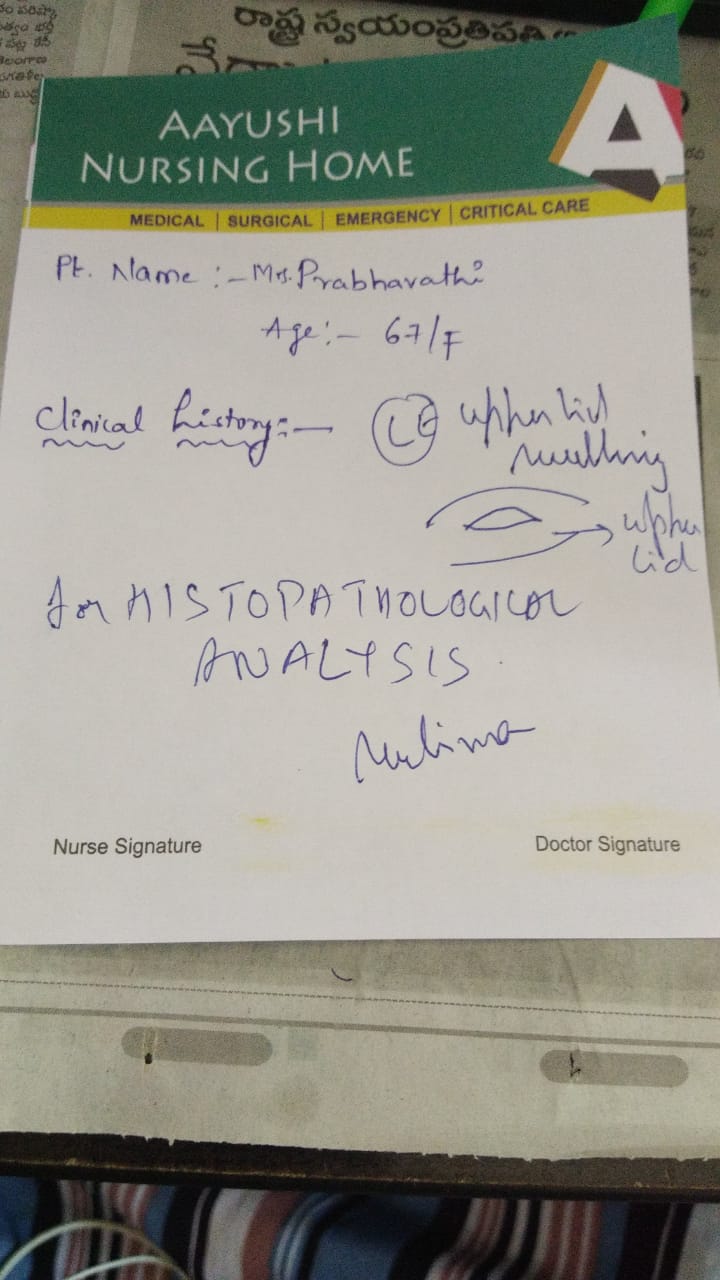 రాష్ట్ర స్వయంప్రతిపత్తి
AAYUSHI
NURSING HOME
MEDICAL | SURGICAL | EMERGENCY | CRITICAL CARE
Pt. Name :- Mrs. Prabhavathi
Age:- 67/F
Clinical history:- LE upper lid
swelling
upper
lid
for HISTOPATHOLOGICAL
ANALYSIS.
Nurse Signature
Doctor Signature